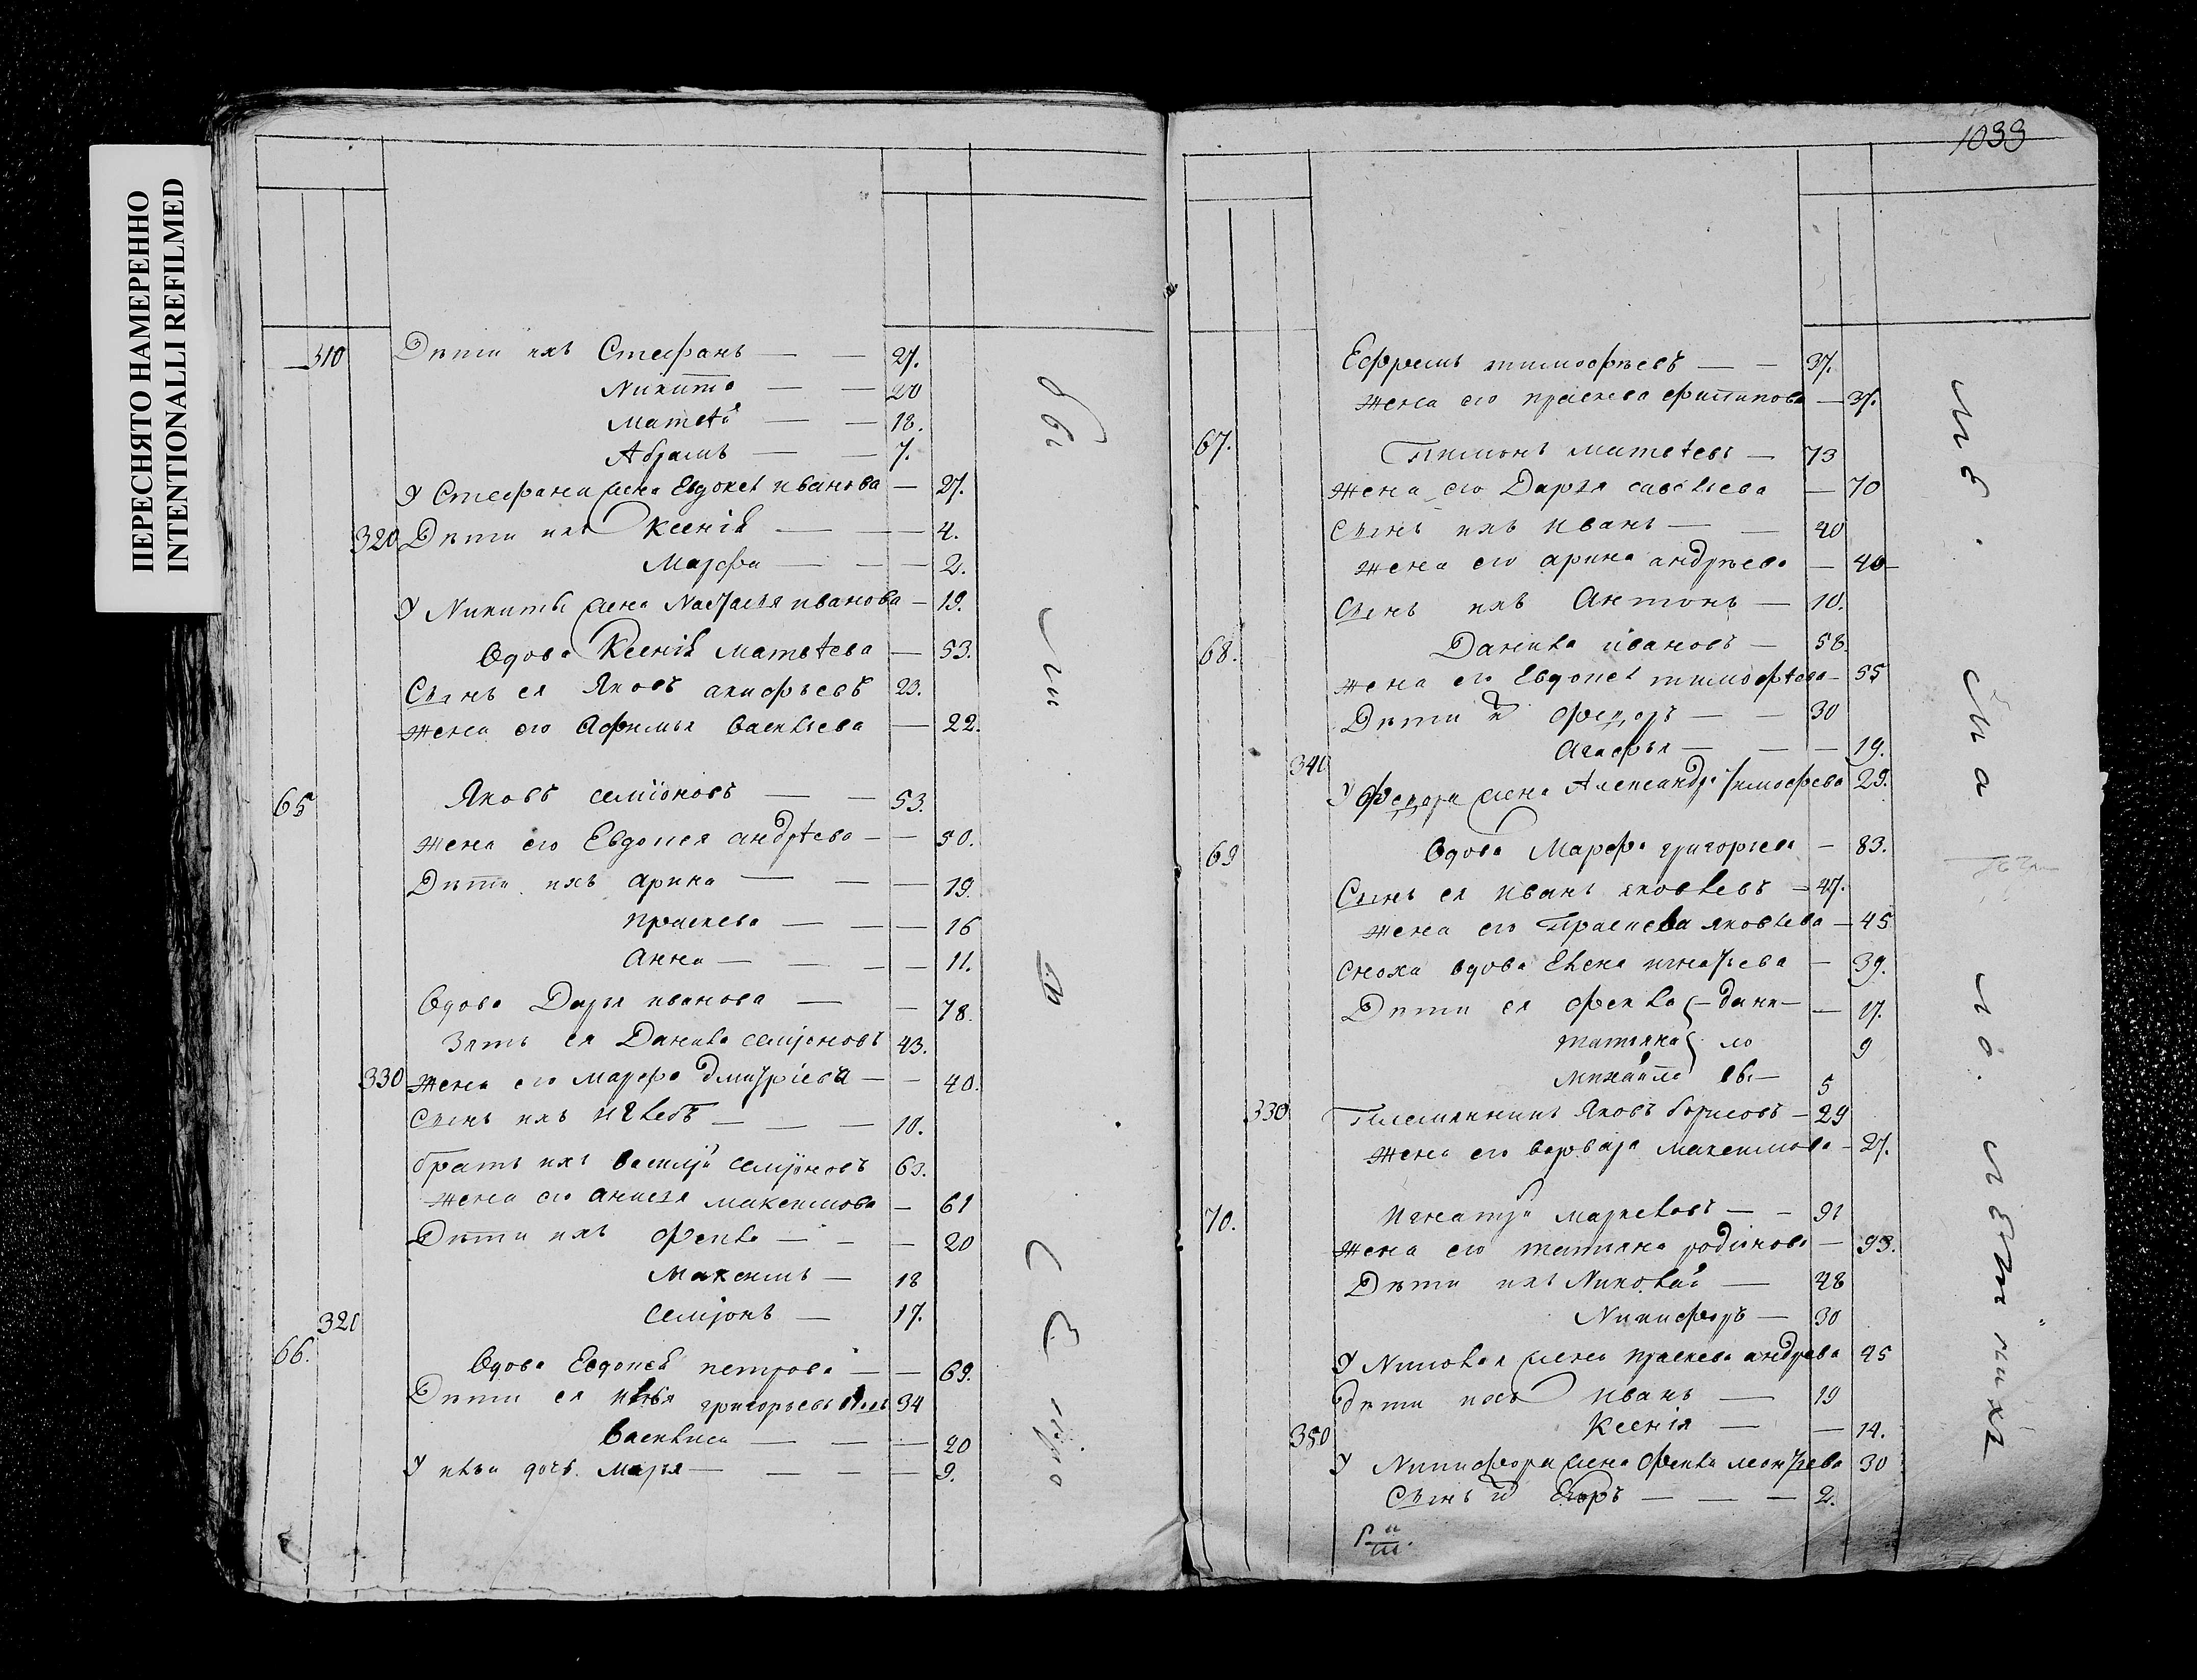 ПЕРЕСНЯТО НАМЕРЕННО
INTENTIONALLI REFILMED
310 Дѣти ихъ Стефанъ — — 27.
Никита — — 20
Матвѣй — — 18.
Абрамъ — — 7.
У Стефана жена Евдокея иванова — 27.
320 Дѣти ихъ Ксенія — — 4.
Марфа — — — 2.
У Никиты жена Настасья иванова — 19.
Вдова Ксенія матвѣева — 53.
Сынъ ея Яковъ акифьевъ 23.
жена его Афимья васильева — 22.
65 Яковъ семіоновъ — — 53.
жена его Евдокея андрѣева — — 50.
Дѣти ихъ арина — — — 19.
праскева — — — 16
Анна — — — — 11.
Вдова Дарья иванова — — 78.
Зять ея Данила семіоновъ 43.
330 жена его марфа дмитріева — — 40.
Сынъ ихъ Глебъ — — — 10.
братъ ихъ василий семионовъ 63.
жена его анисья максимова — 61
Дѣти ихъ Фекла — — — 20
Максимъ — 18
320 семіонъ — 17.
66. Вдова Евдокея петрова — — 69.
Дѣти ея илья григорьевъ 34
василиса — — — 20
У ильи дочь марья — — — — 9.
бы
ли
въ
се
1033
Ефремъ тимофѣевъ — — 37.
жена его праскева филипова — 37.
67. Пимонъ матвѣевъ — 73
жена его Дарья савельева — 70
Сынъ ихъ иванъ — — 40
жена его арина андрѣева — 40
Сынъ ихъ Антонъ — 10.
68. Данила ивановъ — 58.
жена его Евдокея тимофѣева — 55
Дѣти их Федоръ — — 30
340 Агафья — — — 19.
У Федора жена Александра тимофѣева 29.
69 Вдова Марфа григорьева — 83.
Сынъ ея иванъ яковлевъ — 47.
жена его Праскева яковлева — 45
Сноха вдова Елена игнатьева — 39.
Дѣти ея Фекла — дани — — 17.
татьяна ло 9
михайла вы — 5
330 Племянникъ Яковъ борисовъ — 29
жена его варвара максимова — 27.
70. игнатий маркеловъ — — 91
жена его татьяна родіонова — 93.
Дѣти ихъ Николай — 48
Никифоръ — 30
У Николая жена праскева андрѣева 45
Дѣти ихъ иванъ — 19
350 Ксенія — — 14.
У Никифора жена Фекла леонтьева 30
Сынъ их Егоръ — — — 2.